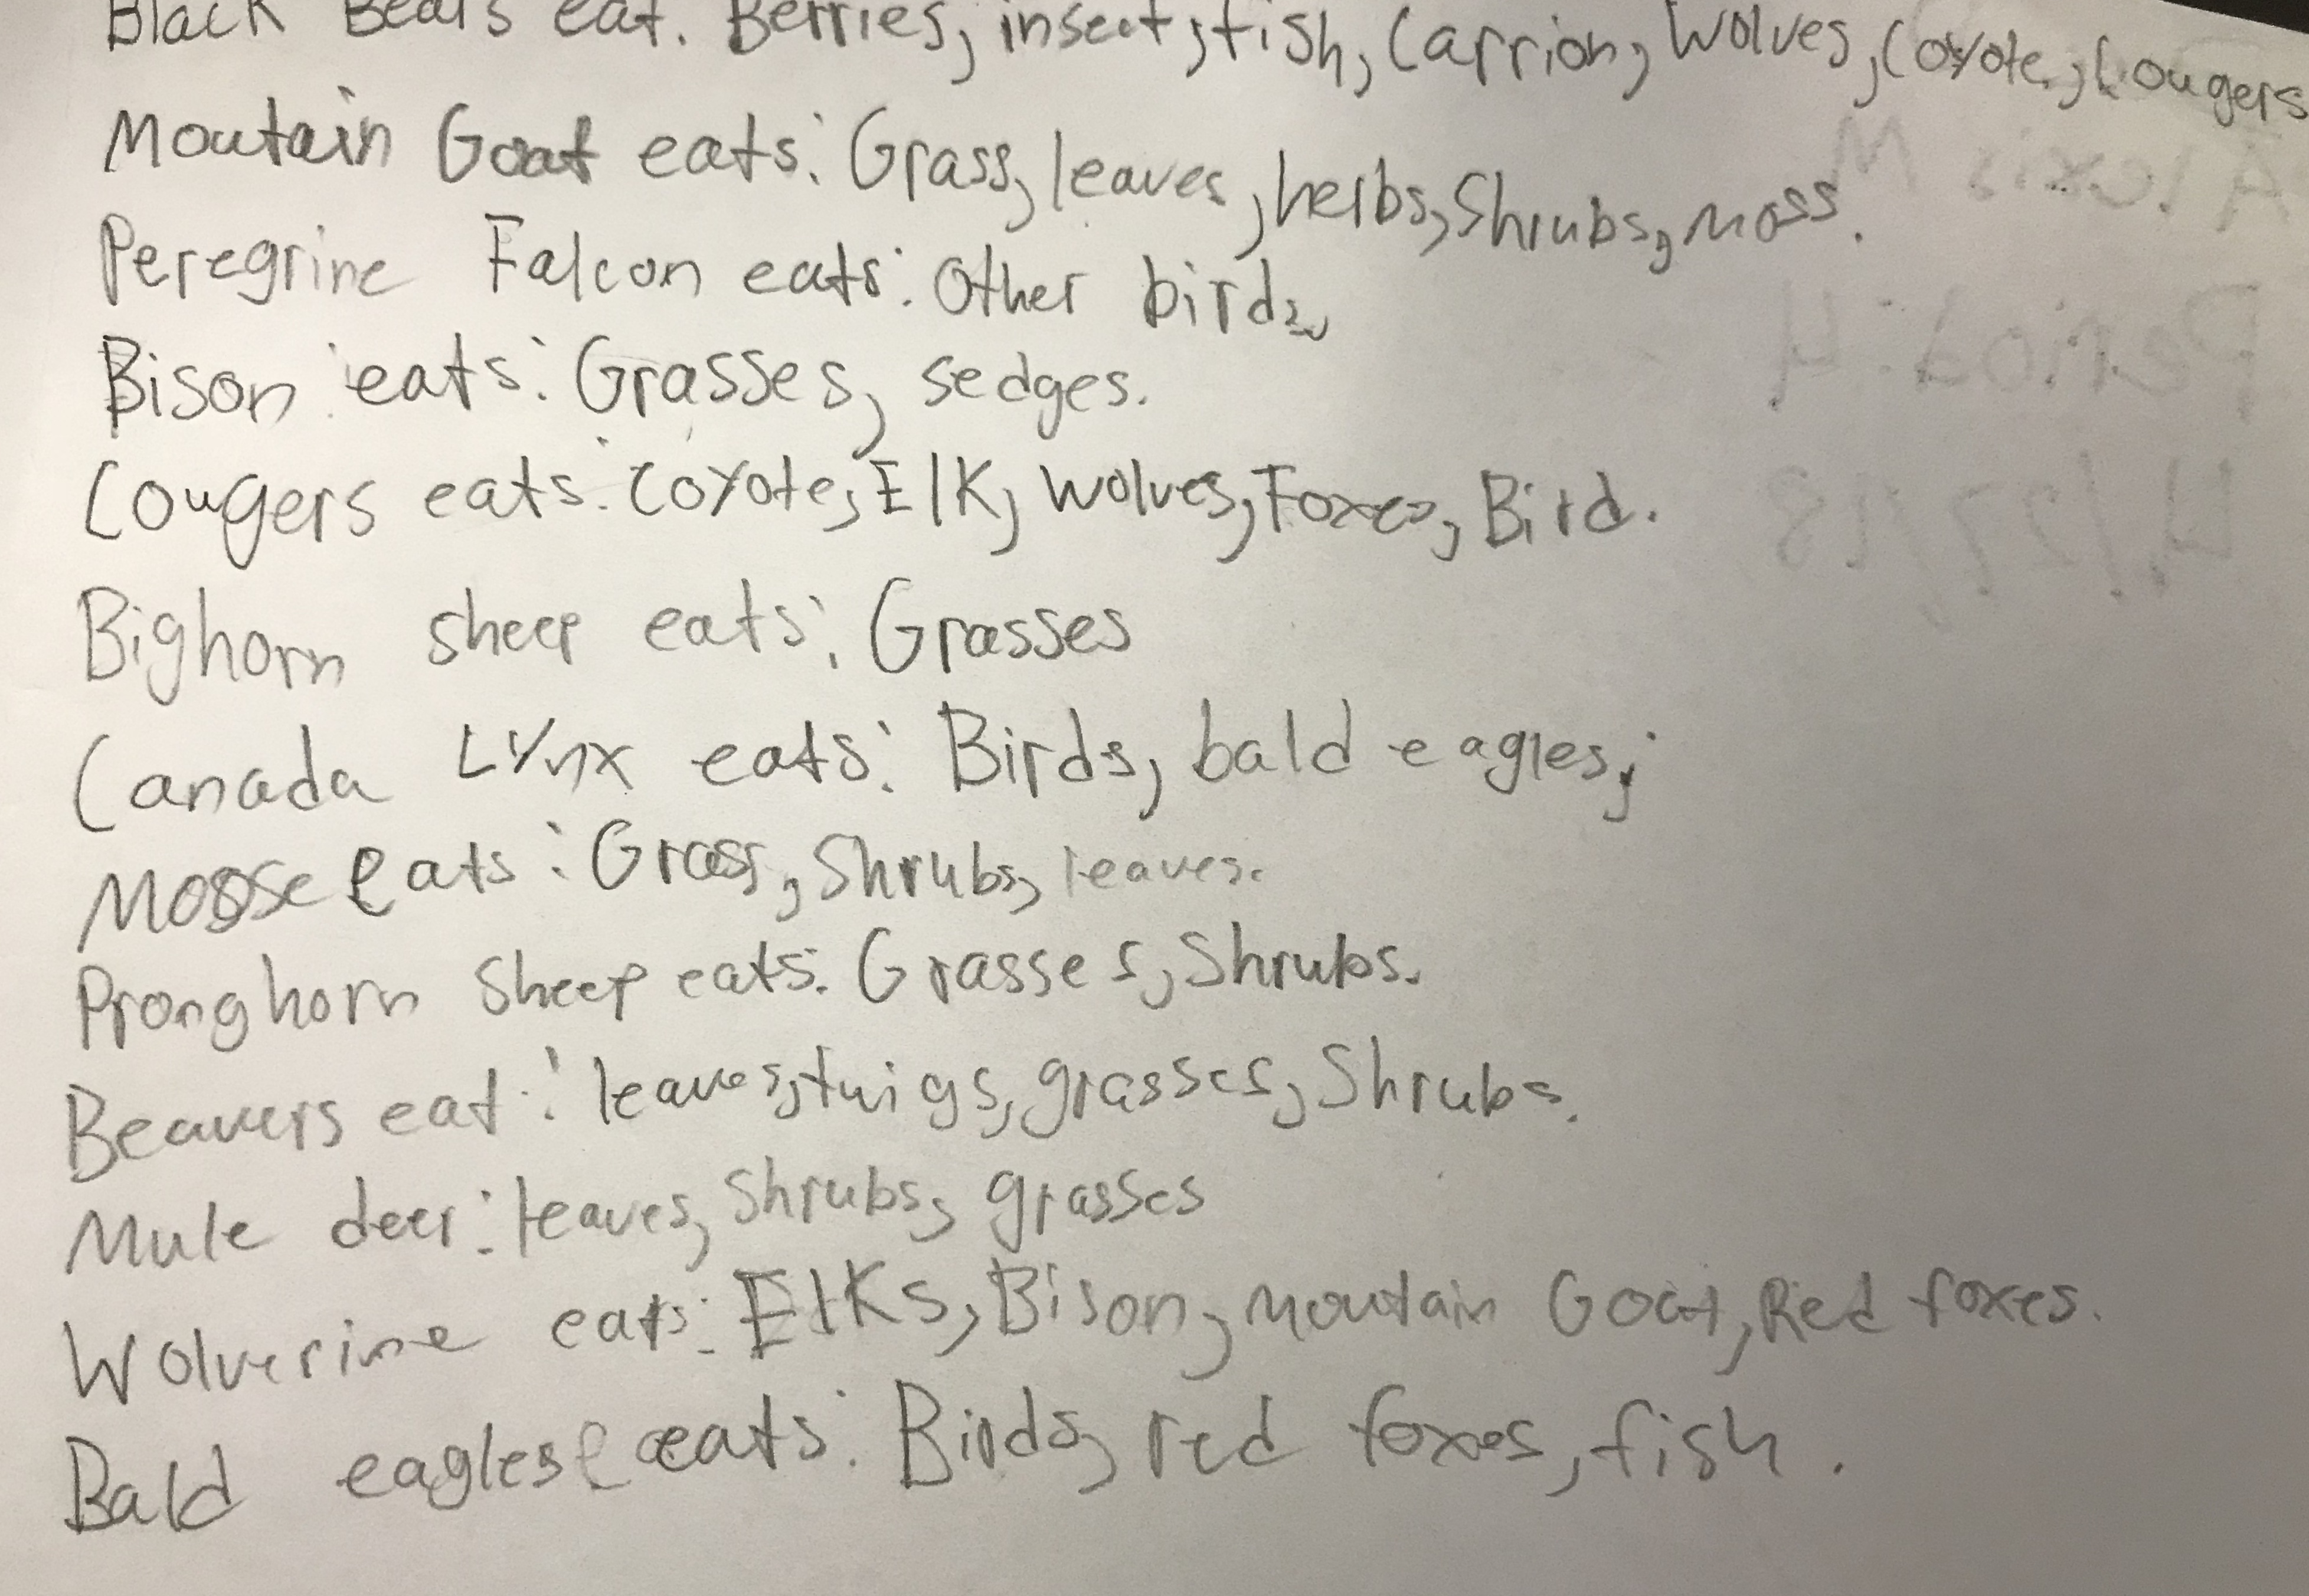 Black Bears eat. Berries, insect, fish, Carrion, Wolves, Coyote, Cougers
Moutain Goat eats: Grass, leaves, herbs, Shrubs, moss.
Peregrine Falcon eats: Other birds
Bison eats: Grasses, sedges.
Cougers eats: Coyote, Elk, Wolves, Foxes, Bird.
Bighorn sheep eats: Grasses
Canada Lynx eats: Birds, bald eagles,
Moose eats: Grass, Shrubs, leaves.
Pronghorn Sheep eats: Grasses, Shrubs.
Beavers eat: leaves, twigs, grasses, Shrubs.
Mule deer: leaves, Shrubs, grasses
Wolverine eats: Elks, Bison, moutain Goat, Red foxes.
Bald eagles eats: Birds, red foxes, fish.
Alexis M
Period: 4
4/27/18